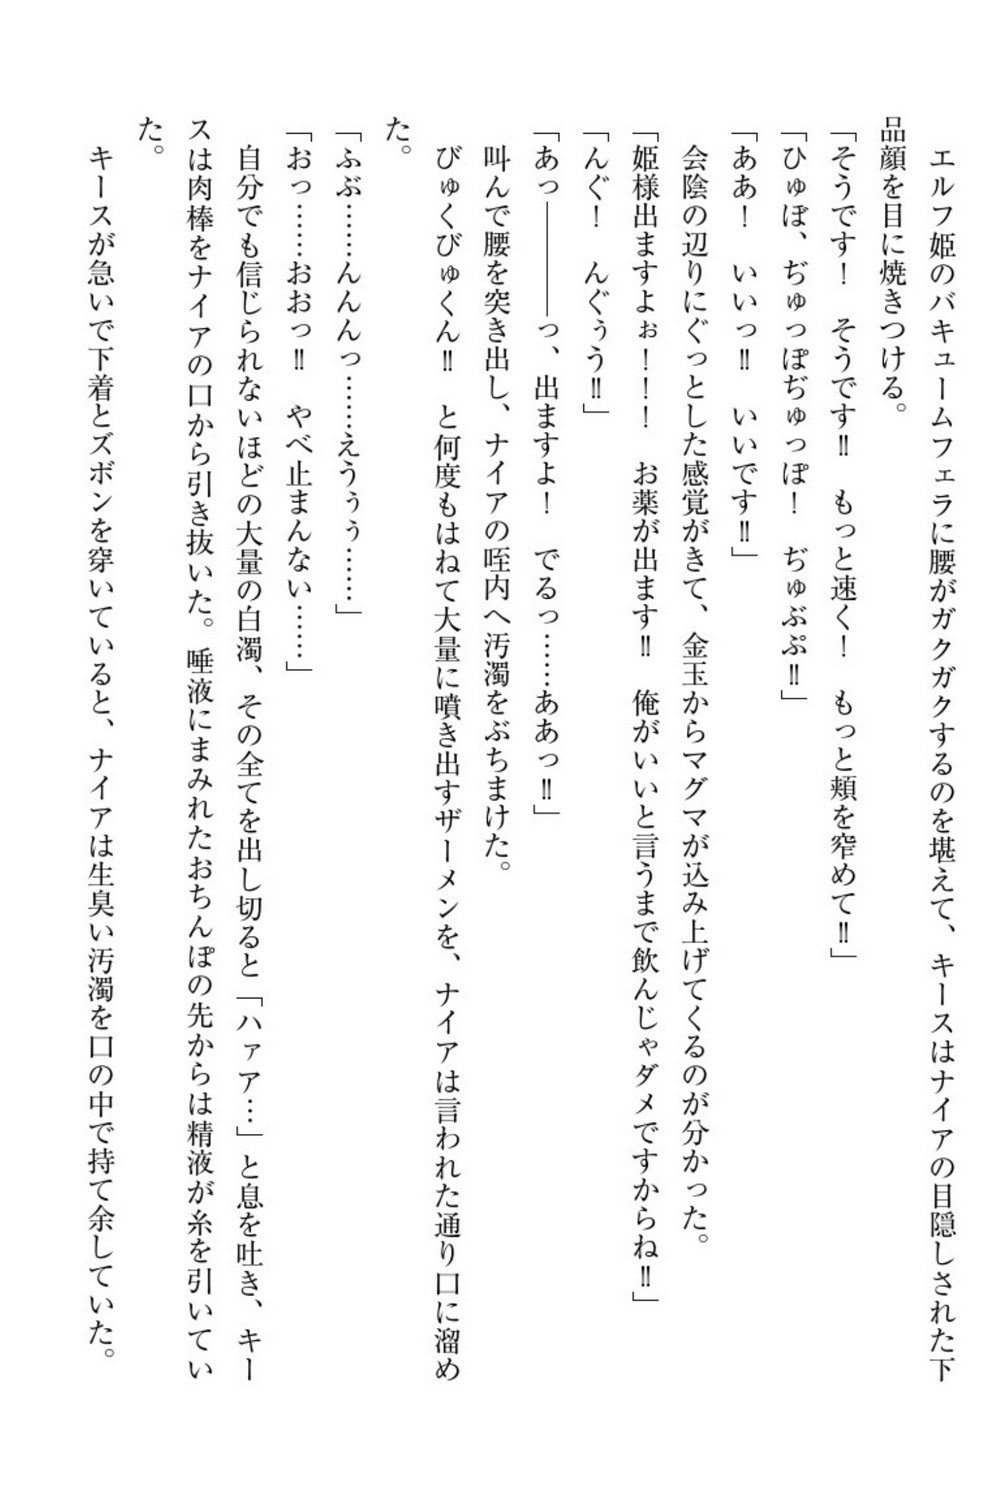 エルフ姫のバキュームフェラに腰がガクガクするのを堪えて、キースはナイアの目隠しされた下
品顔を目に焼きつける。
「そうです！　そうです‼　もっと速く！　もっと頬を窄めて‼」
「ひゅぼ、ぢゅっぽぢゅっぽ！　ぢゅぶぷ‼」
「ああ！　いいっ‼　いいです‼」
会陰の辺りにぐっとした感覚がきて、金玉からマグマが込み上げてくるのが分かった。
「姫様出ますよぉ！！！　お薬が出ます‼　俺がいいと言うまで飲んじゃダメですからね‼」
「んぐ！　んぐぅう‼」
「あっ――――っ、出ますよ！　でるっ……ああっ‼」
叫んで腰を突き出し、ナイアの咥内へ汚濁をぶちまけた。
びゅくびゅくん‼　と何度もはねて大量に噴き出すザーメンを、ナイアは言われた通り口に溜め
た。
「ふぶ……んんんっ……えうぅぅ……」
「おっ……おおっ‼　やべ止まんない……」
自分でも信じられないほどの大量の白濁、その全てを出し切ると「ハァア…」と息を吐き、キー
スは肉棒をナイアの口から引き抜いた。唾液にまみれたおちんぽの先からは精液が糸を引いてい
た。
キースが急いで下着とズボンを穿いていると、ナイアは生臭い汚濁を口の中で持て余していた。